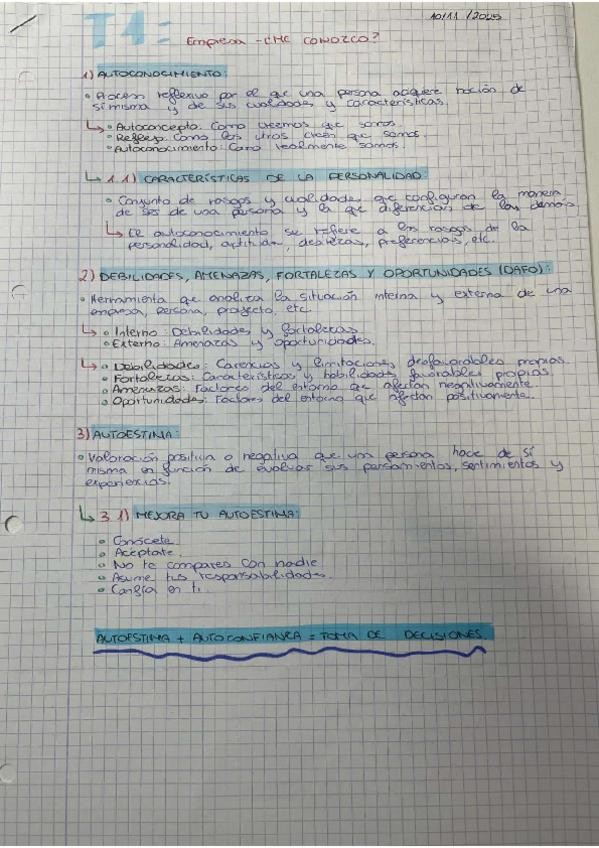 10/11/2025
T1:
Empresa - ¿ME CONOZCO?
1) AUTOCONOCIMIENTO:
• Proceso reflexivo por el que una persona adquiere noción de
sí misma y de sus cualidades y características.
↳ • Autoconcepto: Como creemos que somos.
• Reflejo: Como los otros creen que somos.
• Autoconocimiento: Como realmente somos.
↳ 1.1) CARACTERÍSTICAS DE LA PERSONALIDAD:
• Conjunto de rasgos y cualidades que configuran la manera
de ser de una persona y la que diferencian de los demás.
↳ El autoconocimiento se refiere a los rasgos de la
personalidad, aptitudes, destrezas, preferencias, etc.
2) DEBILIDADES, AMENAZAS, FORTALEZAS Y OPORTUNIDADES (DAFO):
• Herramienta que analiza la situación interna y externa de una
empresa, persona, proyecto, etc.
↳ • Interno: Debilidades y fortalezas.
• Externo: Amenazas y oportunidades.
↳ • Debilidades: Carencias y limitaciones desfavorables propias.
• Fortalezas: Características y habilidades favorables propias.
• Amenazas: Factores del entorno que afectan negativamente.
• Oportunidades: Factores del entorno que afectan positivamente.
3) AUTOESTIMA:
• Valoración positiva o negativa que una persona hace de sí
misma en función de evaluar sus pensamientos, sentimientos y
experiencias.
↳ 3.1) MEJORA TU AUTOESTIMA:
• Conócete.
• Acéptate.
• No te compares con nadie.
• Asume tus responsabilidades.
• Confía en ti.
AUTOESTIMA + AUTOCONFIANZA = TOMA DE DECISIONES.